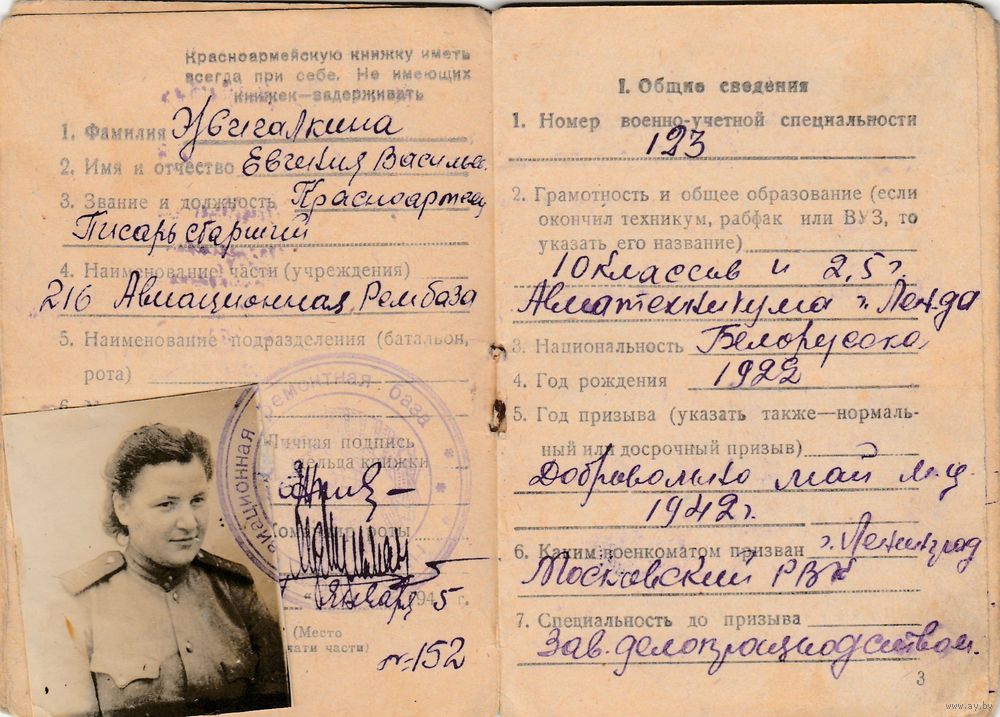 Красноармейскую книжку иметь
всегда при себе. Не имеющих
книжек—задерживать
1. Фамилия
2. Имя и отчество Евгения Василь.
3. Звание и должность Красноармеец
Писарь старший
4. Наименование части (учреждения)
216 Авиационная Рембаза
5. Наименование подразделения (батальон,
рота)
6.
Личная подпись
владельца книжки
роты
Января 1945 г.
(Место
печати части)
№152
авиационная ремонтная база
I. Общие сведения
1. Номер военно-учетной специальности
123
2. Грамотность и общее образование (если
окончил техникум, рабфак или ВУЗ, то
указать его название)
10 классов и 2,5 г.
Авиатехникума г. Лен-да
3. Национальность Белоруска
4. Год рождения 1922
5. Год призыва (указать также—нормаль-
ный или досрочный призыв)
Добровольно май м-ц
1942 г.
6. Каким военкоматом призван г. Ленинград
Московский РВК
7. Специальность до призыва
Зав. делопроизводством.
3
www.ay.by